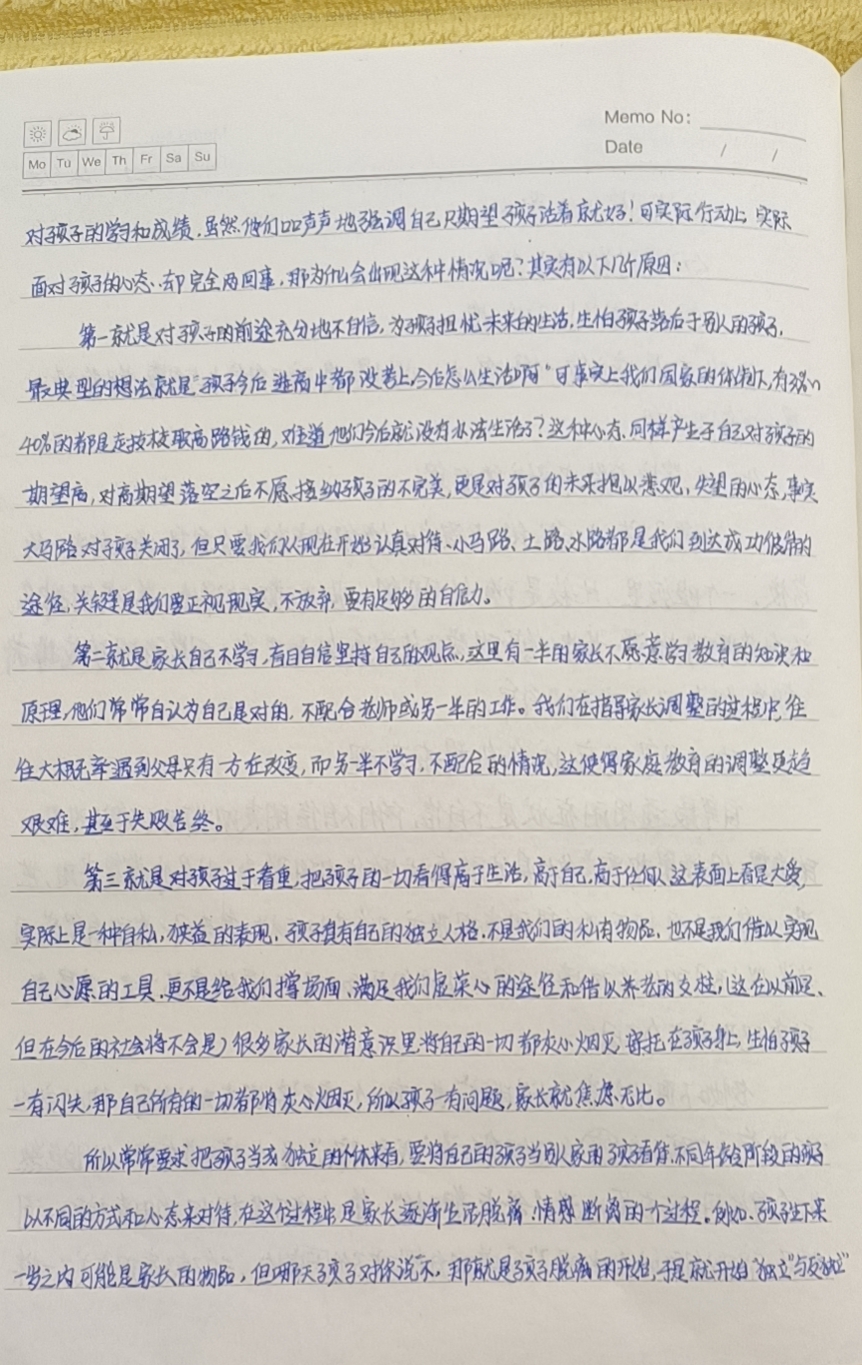 Memo No:
Mo Tu We Th Fr Sa Su
Date / /
对孩子的学习和成绩,虽然他们口口声声地强调自己只期望孩子活着就好!可实际行动上,实际
面对孩子的心态、却完全两回事,那为什么会出现这种情况呢?其实有以下几个原因:
第一就是对孩子的前途充分地不自信,为孩子担忧未来的生活,生怕孩子落后于别人的孩子,
最典型的想法就是“孩子今后连高中都没考上,今后怎么生活啊”可事实上我们国家的体制下,有
40%的都是走技校职高路线的,难道他们今后就没有办法生活了?这种心态、同样产生于自己对孩子的
期望高,对高期望落空之后不愿接纳孩子的不完美,更是对孩子的未来抱以悲观,失望的心态,事实
大马路对孩子关闭了,但只要我们从现在开始认真对待、小马路、土路、水路都是我们到达成功彼岸的
途径,关键是我们要正视现实,不放弃,要有足够的自信力。
第二就是家长自己不学习,盲目自信坚持自己的观点,这里有一半的家长不愿意学习教育的知识和
原理,他们常常自认为自己是对的,不配合老师或另一半的工作。我们在指导家长调整的过程中,往
往大概率遇到父母只有一方在改变,而另一半不学习,不配合的情况,这使得家庭教育的调整更趋
艰难,甚至于失败告终。
第三就是对孩子过于看重,把孩子的一切看得高于生活,高于自己,高于任何人,这表面上看是大爱,
实际上是一种自私,狭益的表现,孩子具有自己的独立人格,不是我们的私有物品,也不是我们借以实现
自己心愿的工具,更不是给我们撑场面、满足我们虚荣心的途径和借以养老的支柱,(这在以前是、
但在今后的社会将不会是)很多家长的潜意识里将自己的一切都灰心烟灭,寄托在孩子身上,生怕孩子
一有闪失,那自己所有的一切都将灰心烟灭,所以孩子一有问题,家长就焦虑无比。
所以常常要求把孩子当成独立的个体来看,要将自己的孩子当别人家的孩子看待,不同年龄阶段的孩子
以不同的方式和心态来对待,在这个过程中是家长逐渐生活脱离、情感断离的一个过程。例如、孩子生下来
一岁之内可能是家长的物品,但哪天孩子对你说“不”,那就是孩子脱离的开始,于是就开始“独立”与反独立”